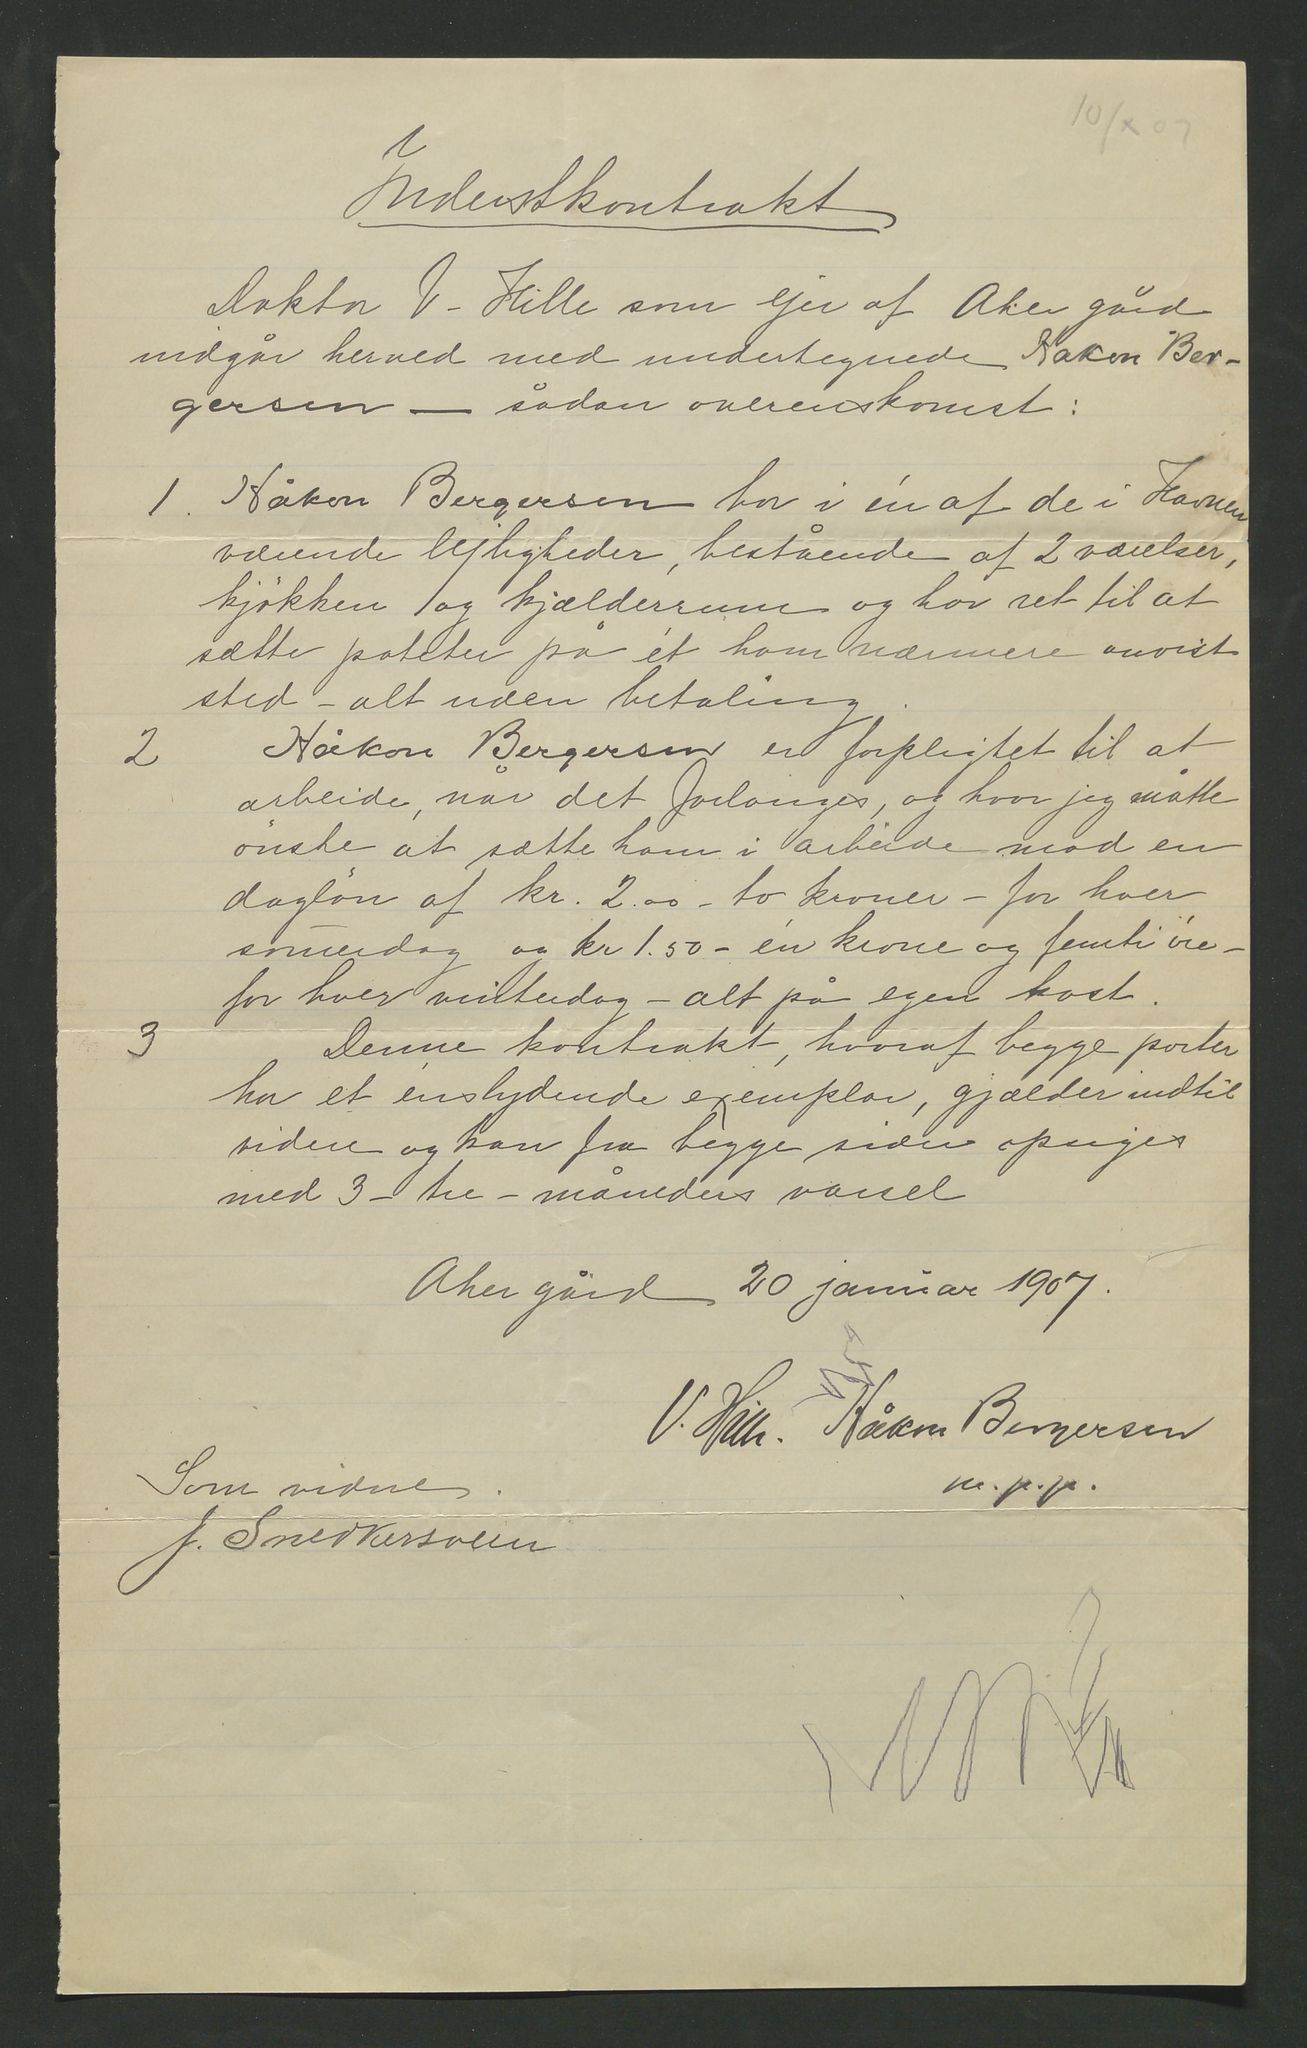 10/x 07
Inderstkontrakt
Doktor V. Hille som ejer af Aker gård
indgår herved med undertegnede Håkon Ber-
gersen — sådan overenskomst:
1. Håkon Bergersen bor i én af de i Havnen
værende lejligheder, bestående af 2 værelser,
kjökken og kjælderrum og har ret til at
sætte poteter på ét ham nærmere anvist
sted - alt uden betaling.
2 Håkon Bergersen er forpligtet til at
arbeide, når det forlanges, og hvor jeg måtte
önske at sætte ham i arbeide mod en
daglön af kr. 2.00 - to kroner - for hver
som̅erdag og kr 1.50 - én krone og femti öre -
for hver vinterdag - alt på egen kost.
3 Denne kontrakt, hvoraf begge parter
har et énslydende exemplar, gjælder indtil
videre og kan fra begge sider opsiges
med 3 - tre - måneders varsel
Aker gård 20 januar 1907.
V. Hille. Håkon Bergersen
m.p.p.
Som vidne.
J. Snedkersveen